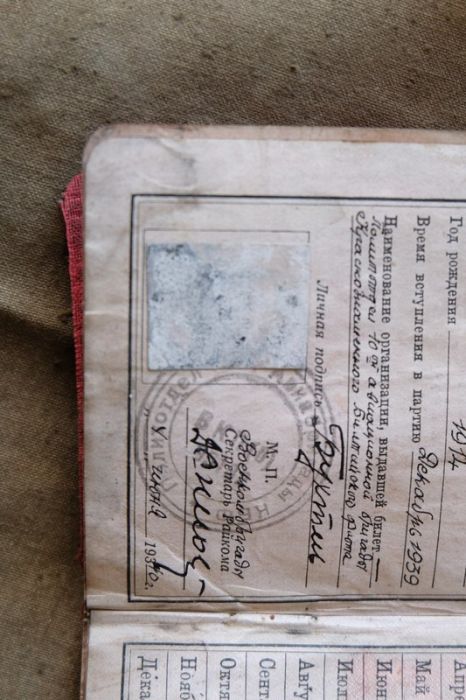 Год рождения 1914
Время вступления в партию Декабрь 1939
Наименование организации, выдавшей билет —
Политотдел 10ой авиационной бригады
Краснознаменного Балтийского флота
Личная подпись
М. П.
Военком бригады
Секретарь Райкома
июня 1940 г.
Май
Июн
Авгу
Сент
Октя
Нояб
Дека